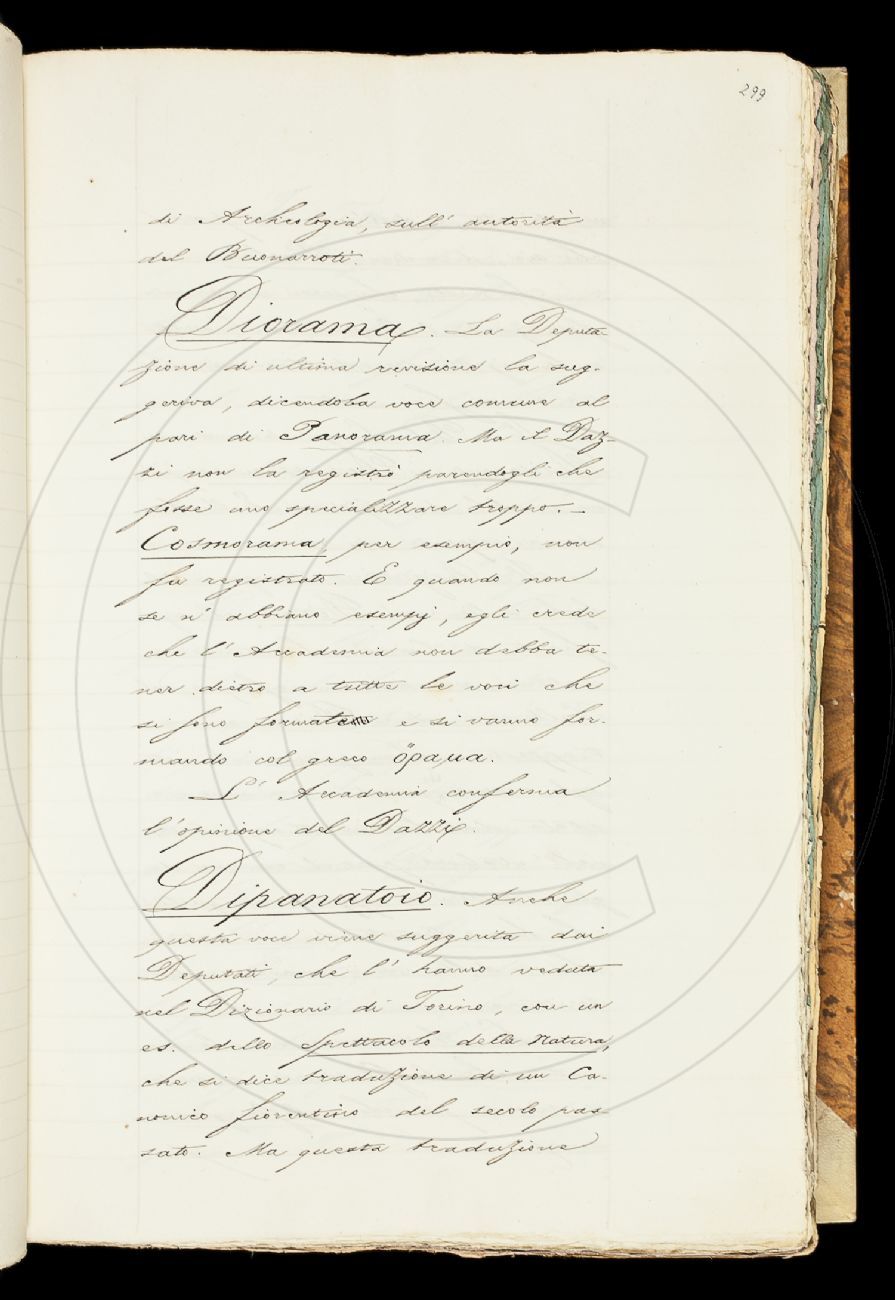 299
di Archeologia, sull' autorità
del Buonarroti.
Diorama. La Deputa-
zione di ultima revisione la sug-
geriva, dicendola voce comune al
pari di Panorama. Ma il Daz-
zi non la registrò parendogli che
fosse uno specializzare troppo. –
Cosmorama, per esempio, non
fu registrato. E quando non
se n' abbiano esempj, egli crede
che l' Accademia non debba te-
ner dietro a tutte le voci che
si sono formate e si vanno for-
mando col greco ὅραμα.
L' Accademia conferma
l' opinione del Dazzi.
Dipanatoio. Anche
questa voce viene suggerita dai
Deputati, che l' hanno veduta
nel Dizionario di Torino, con un
es. dello Spettacolo della Natura,
che si dice traduzione di un Ca-
nonico fiorentino del secolo pas-
sato. Ma questa traduzione